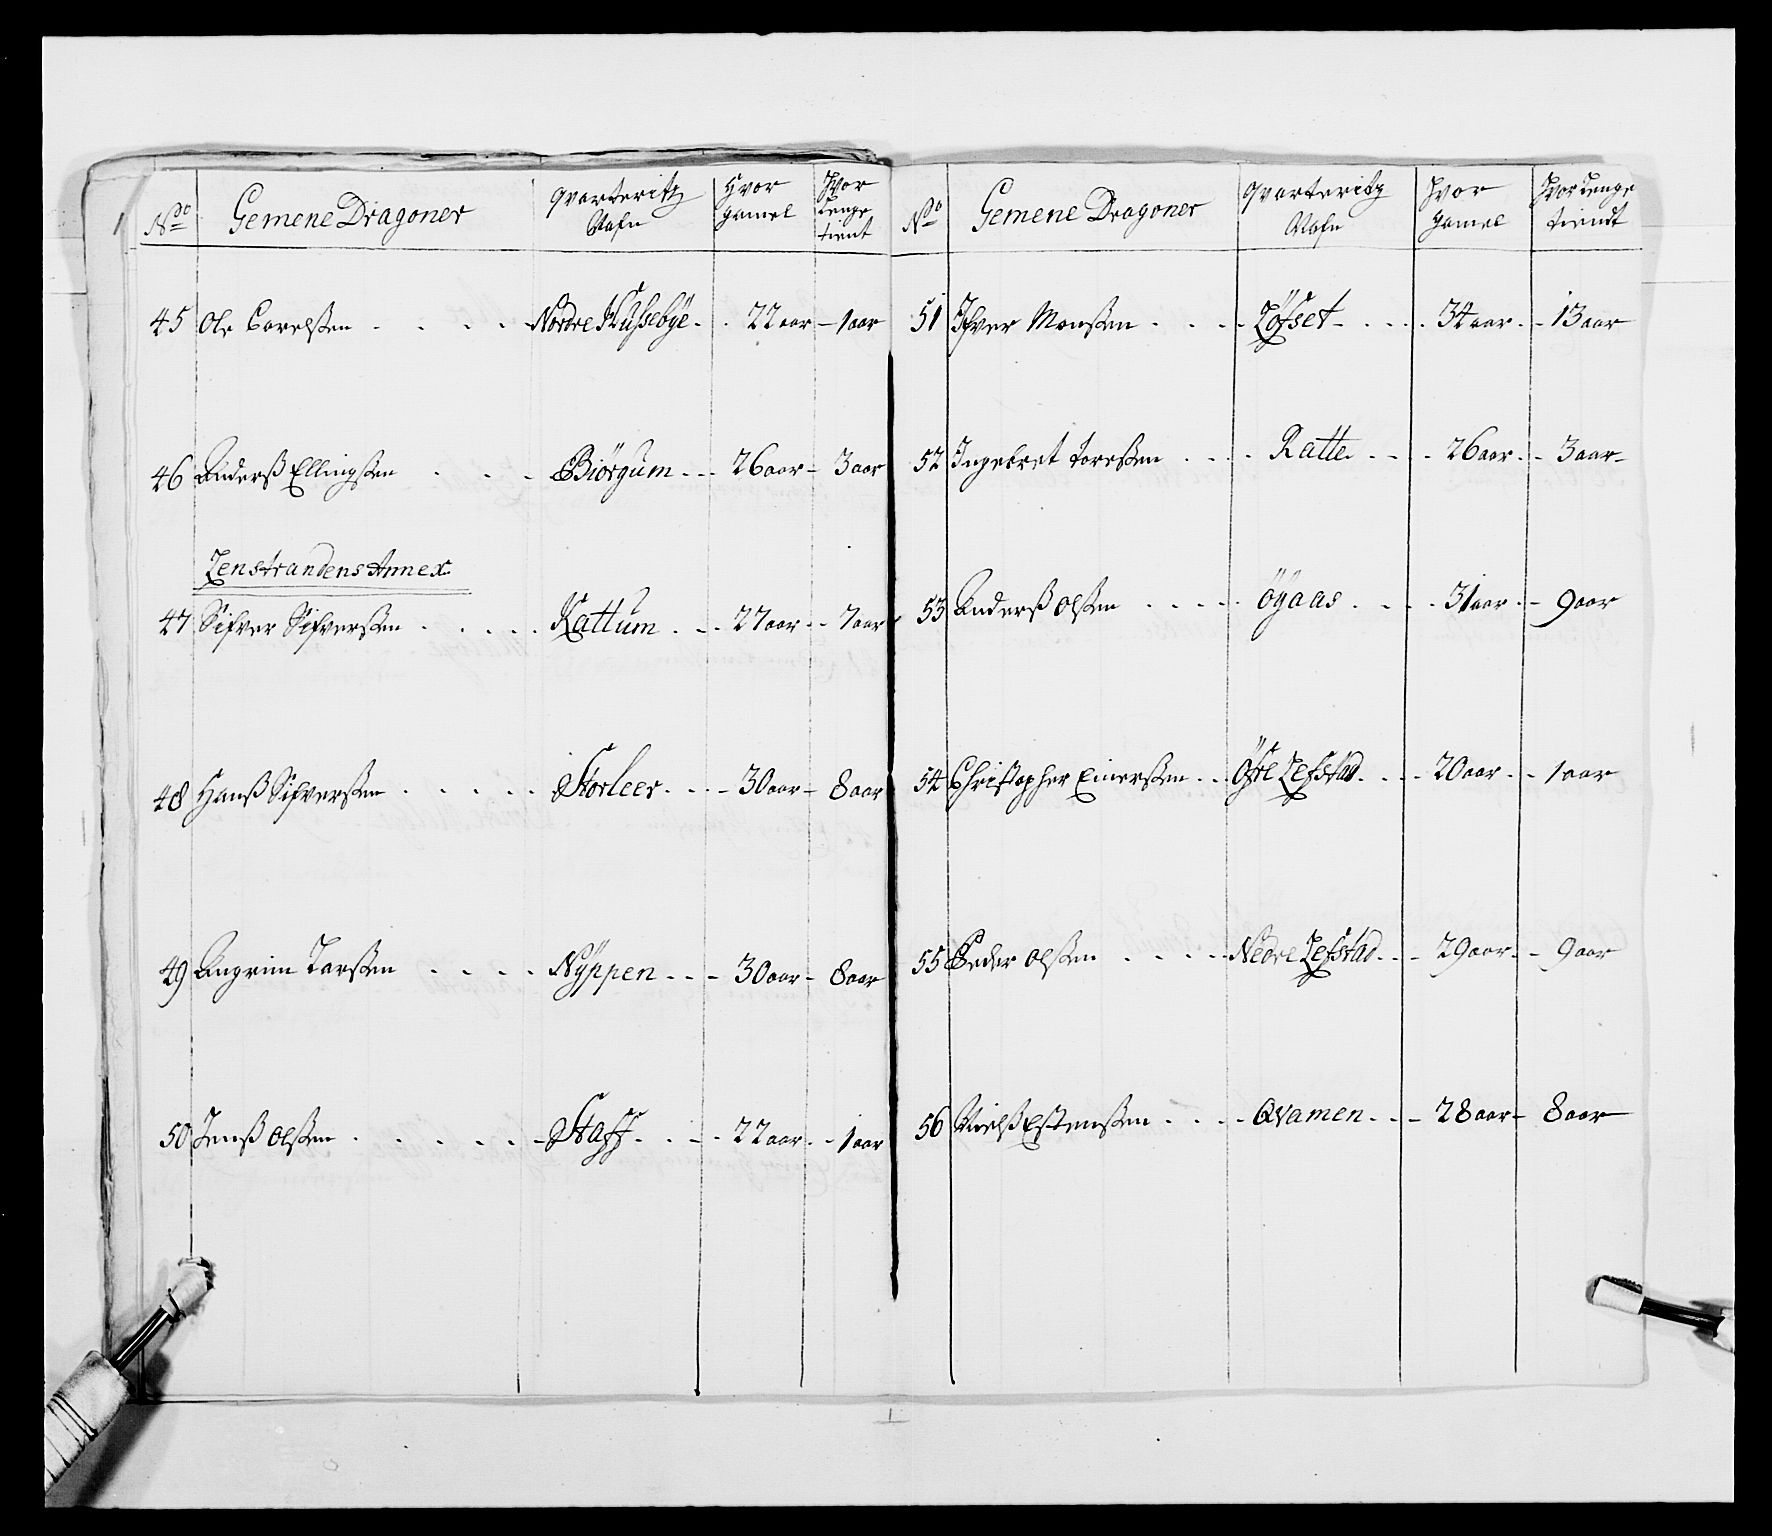 No Gemene Dragoner qvarteritz Nafn Hvor gamel Hvor Lenge tient
45 Ole Carelsen Nordre Hussebÿe 22 aar 1 aar
46 Anderß Ellingsen Biörgum 26 aar 3 aar
Lenstrandens Annex
47 Sifver Sifversen Kattum 27 aar 7 aar
48 Hanß Sifversen Storleer 30 aar 8 aar
49 Angrim Larsen Nÿppen 30 aar 8 aar
50 Jenß Olsen Staff 22 aar 1 aar
No Gemene Dragoner qvarteritz Nafn Hvor gamel Hvor Lenge tiendt
51 Ifver Monsen Löfset 34 aar 13 aar
52 Ingebret Toresen Ratte 26 aar 3 aar
53 Anderß Olsen Öÿaas 31 aar 9 aar
54 Christopher Einersen Öfre Lefstad 20 aar 1 aar
55 Peder Olsen Nedre Lefstad 29 aar 9 aar
56 Nielß Estensen Qvamen 28 aar 8 aar